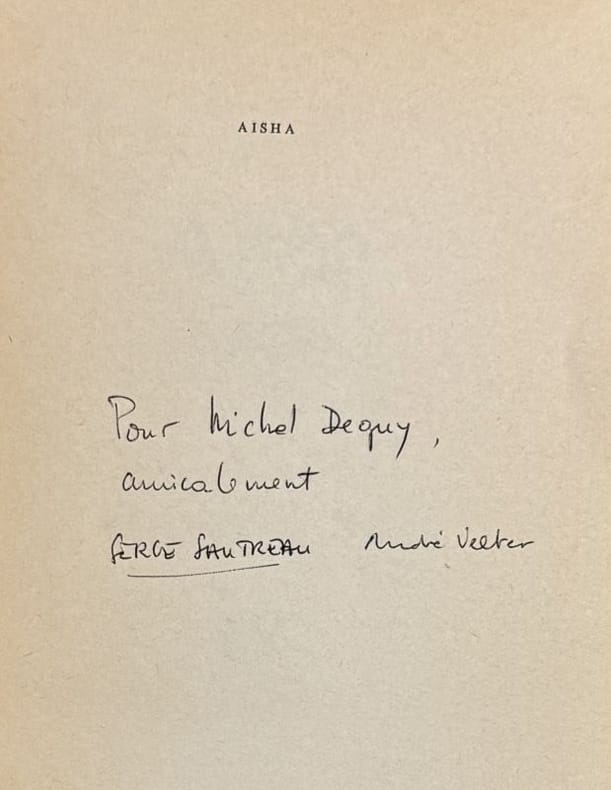 AISHA
Pour Michel Deguy,
amicalement
SERGE SAUTREAU André Velter